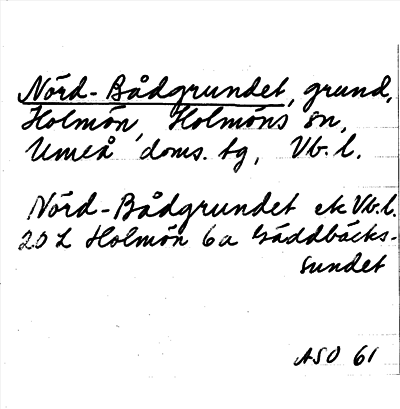 Nörd-Bådgrundet, grund,
Holmön, Holmöns sn,
Umeå doms. tg, Vb. l.
Nörd-Bådgrundet ek Vb.l.
20 L Holmön 6a Gäddbäcks-
sundet
ASO 61